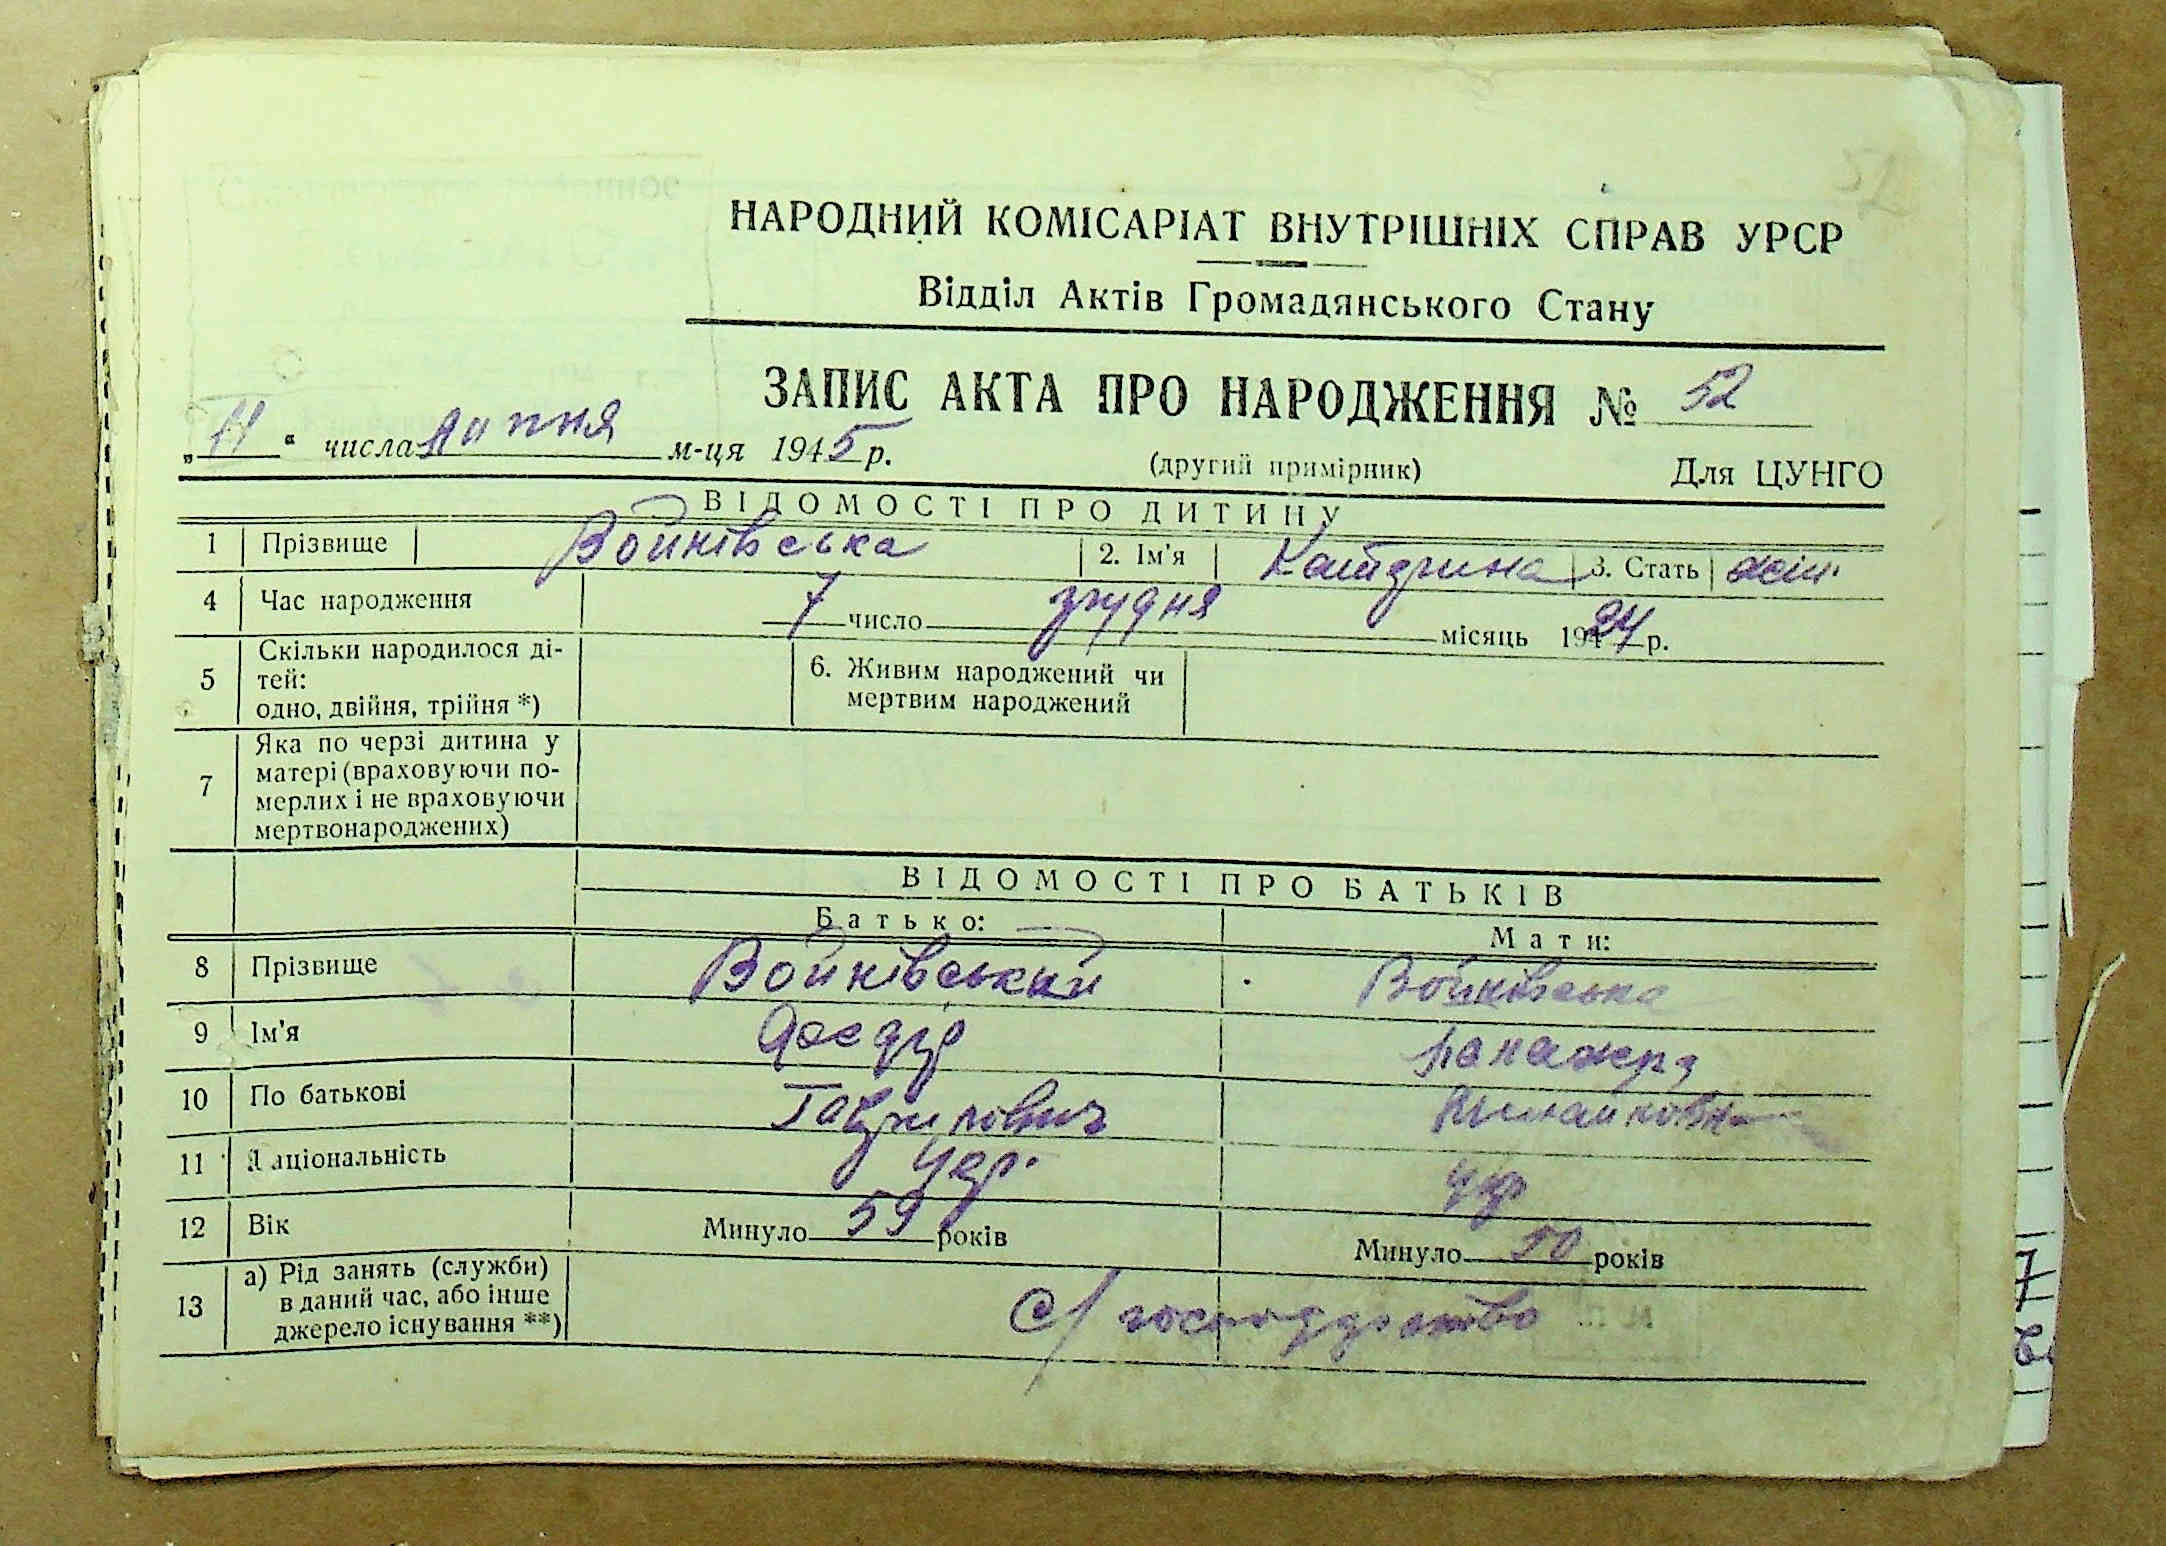 НАРОДНИЙ КОМІСАРІАТ ВНУТРІШНІХ СПРАВ УРСР
Відділ Актів Громадянського Стану
ЗАПИС АКТА ПРО НАРОДЖЕННЯ № 52
„11“ числа липня м-ця 1945 р.
(другий примірник) Для ЦУНГО
ВІДОМОСТІ ПРО ДИТИНУ
1 Прізвище Войнівська 2. Ім'я Катерина 3. Стать жін.
4 Час народження 7 число грудня місяць 1924 р.
5 Скільки народилося ді-
тей:
одно, двійня, трійня *)
6. Живим народжений чи
мертвим народжений
7 Яка по черзі дитина у
матері (враховуючи по-
мерлих і не враховуючи
мертвонароджених)
ВІДОМОСТІ ПРО БАТЬКІВ
Батько: Мати:
8 Прізвище Войнівський Войнівська
9 Ім'я Федір
10 По батькові Гаврилович
11 Національність укр. укр
12 Вік Минуло 59 років Минуло 50 років
13 а) Рід занять (служби)
в даний час, або інше
джерело існування **)
с/господарство